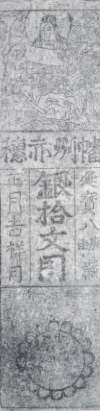 播州赤穂
延寳八
銀拾文目
月吉祥日